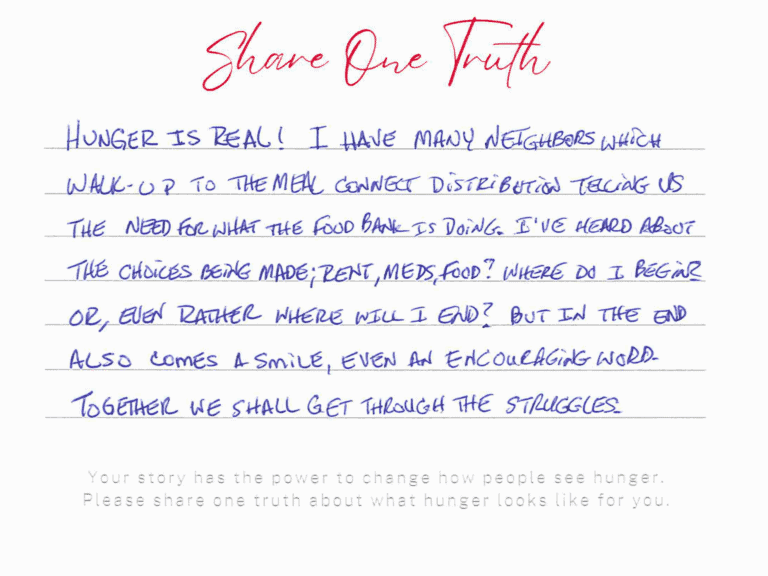 Share One Truth
HUNGER IS REAL! I HAVE MANY NEIGHBORS WHICH
WALK-UP TO THE MEAL CONNECT DISTRIBUTION TELLING US
THE NEED FOR WHAT THE FOOD BANK IS DOING. I'VE HEARD ABOUT
THE CHOICES BEING MADE; RENT, MEDS, FOOD? WHERE DO I BEGIN?
OR, EVEN RATHER WHERE WILL I END? BUT IN THE END
ALSO COMES A SMILE, EVEN AN ENCOURAGING WORD.
TOGETHER WE SHALL GET THROUGH THE STRUGGLES.
Your story has the power to change how people see hunger.
Please share one truth about what hunger looks like for you.